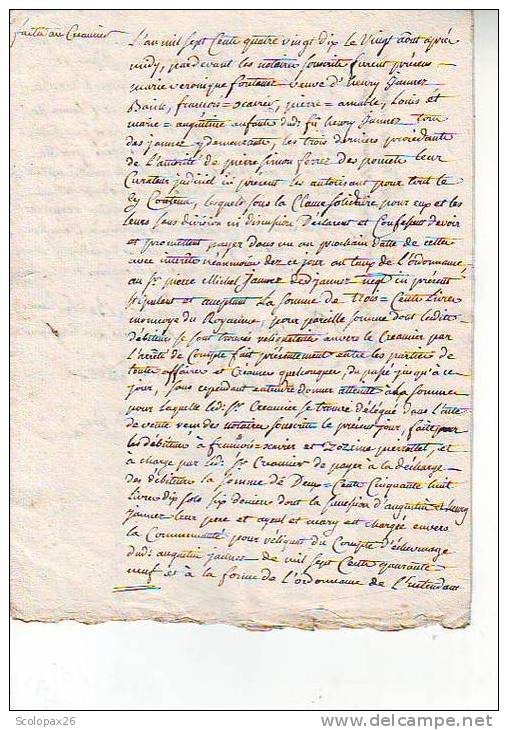 faitte au Creancier
L'an mil sept Cents quatre vingt dix Le Vingt aout après
midy, pardevant les notaires souscrits furent présens
marie veronique fontenet veuve d'henry Jannez
francois=xavier, pierre=amable, Louis et
marie=augustine enfants dud. fû henry Jannez tous
des jannez y demeurants, les trois derniers procédants
de l'autorité de pierre simon ferrez des pomets leur
Curateur judiciel ici présent les autorisant pour tout le
Cy Contenu, lesquels sous la Clause solidaire pour eux et les
leurs sans division ni discussion Déclarent et Confessent devoir
et promettent payer dans un an prochain datte de cette
avec interets néanmoins dez ce jour au taux de l'ordonnance
au Sr. pierre michel Jannez des jannez negt. ici présent
stipulant et acceptant La somme de trois=Cents Livres
monnoye du Royaume, pour pareille somme dont lesdits
débiteurs se sont trouvés réliquataires envers le Creancier par
L'arrêté de Compte fait présentement entre les parties de
toutes affaires et Creances quelconques, du passé jusqu'à ce
jour, sans cependant entendre donner atteinte à la somme
pour laquelle led. Sr. Creancier se trouve délégué dans l'acte
de vente reçu des notaires souscrits le présent jour, faitte par
les débiteurs à francois=xavier et Zozime pierrottet, et
à charge par led. Sr. Creancier de payer à la décharge
des débiteurs la somme de Deux=Cents Cinquante huit
Livres dix sols six deniers dont la succession d'augustin et henry
jannez leur pere et ayeul et mary est chargée envers
la Communauté pour réliquat du Compte d'échevinage
dud. augustin jannez de mil sept Cents quarante
neuf et à la forme de L'ordonnance de L'Intendant
Scolopax26
www.delcampe.net